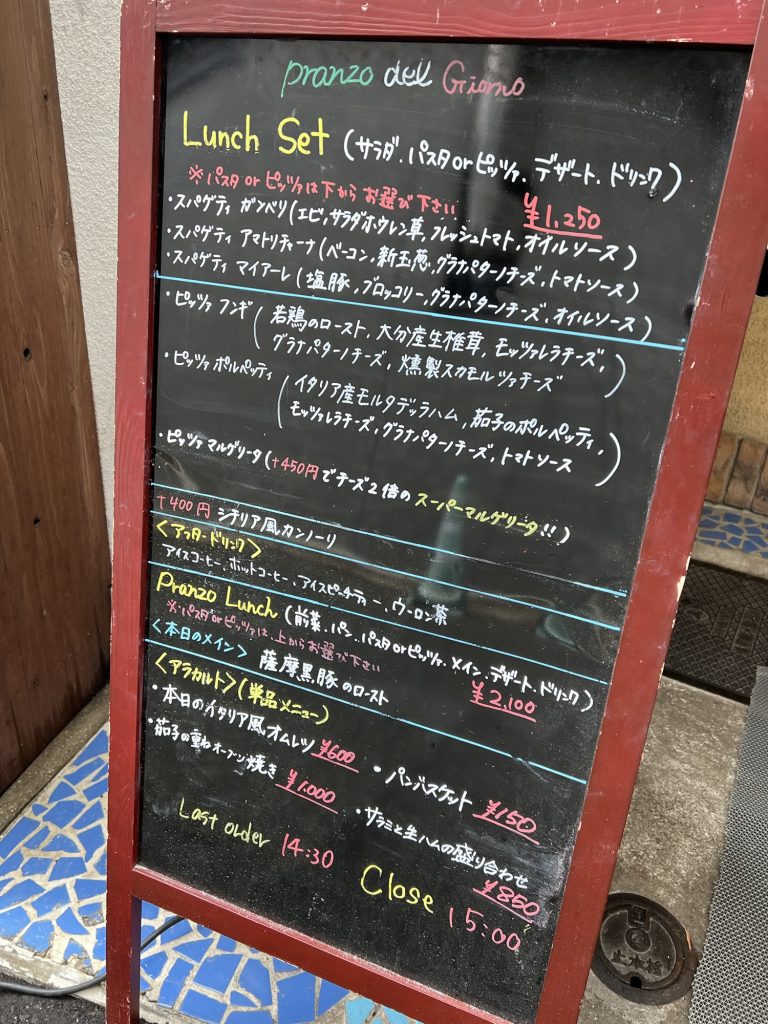 Pranzo del Giorno
Lunch Set (サラダ、パスタorピッツァ、デザート、ドリンク)
※パスタorピッツァは下からお選び下さい ¥1,250
・スパゲティ ガンベリ(エビ,サラダホウレン草,フレッシュトマト,オイルソース)
・スパゲティ アマトリチャーナ(ベーコン,新玉葱,グラナパダーノチーズ,トマトソース)
・スパゲティ マイアーレ(塩豚,ブロッコリー,グラナパダーノチーズ,オイルソース)
・ピッツァ フンギ(若鶏のロースト,大分産生椎茸,モッツァレラチーズ,
グラナパダーノチーズ,燻製スカモルツァチーズ)
・ピッツァ ポルペッティ(イタリア産モルタデッラハム,茄子のポルペッティ,
モッツァレラチーズ,グラナパダーノチーズ,トマトソース)
・ピッツァ マルゲリータ(+450円でチーズ2倍のスーパーマルゲリータ!!)
+400円 シチリア風カンノーリ
<アフタードリンク>
アイスコーヒー、ホットコーヒー、アイスピーチティー、ウーロン茶
Pranzo Lunch (前菜、パン、パスタorピッツァ、メイン、デザート、ドリンク)
※パスタorピッツァは、上からお選び下さい ¥2,100
<本日のメイン> 薩摩黒豚のロースト
<アラカルト>(単品メニュー)
・本日のイタリア風オムレツ ¥600
・パンバスケット ¥150
・茄子の重ねオーブン焼き ¥1,000
・サラミと生ハムの盛り合わせ ¥850
Last order 14:30
Close 15:00
止水栓